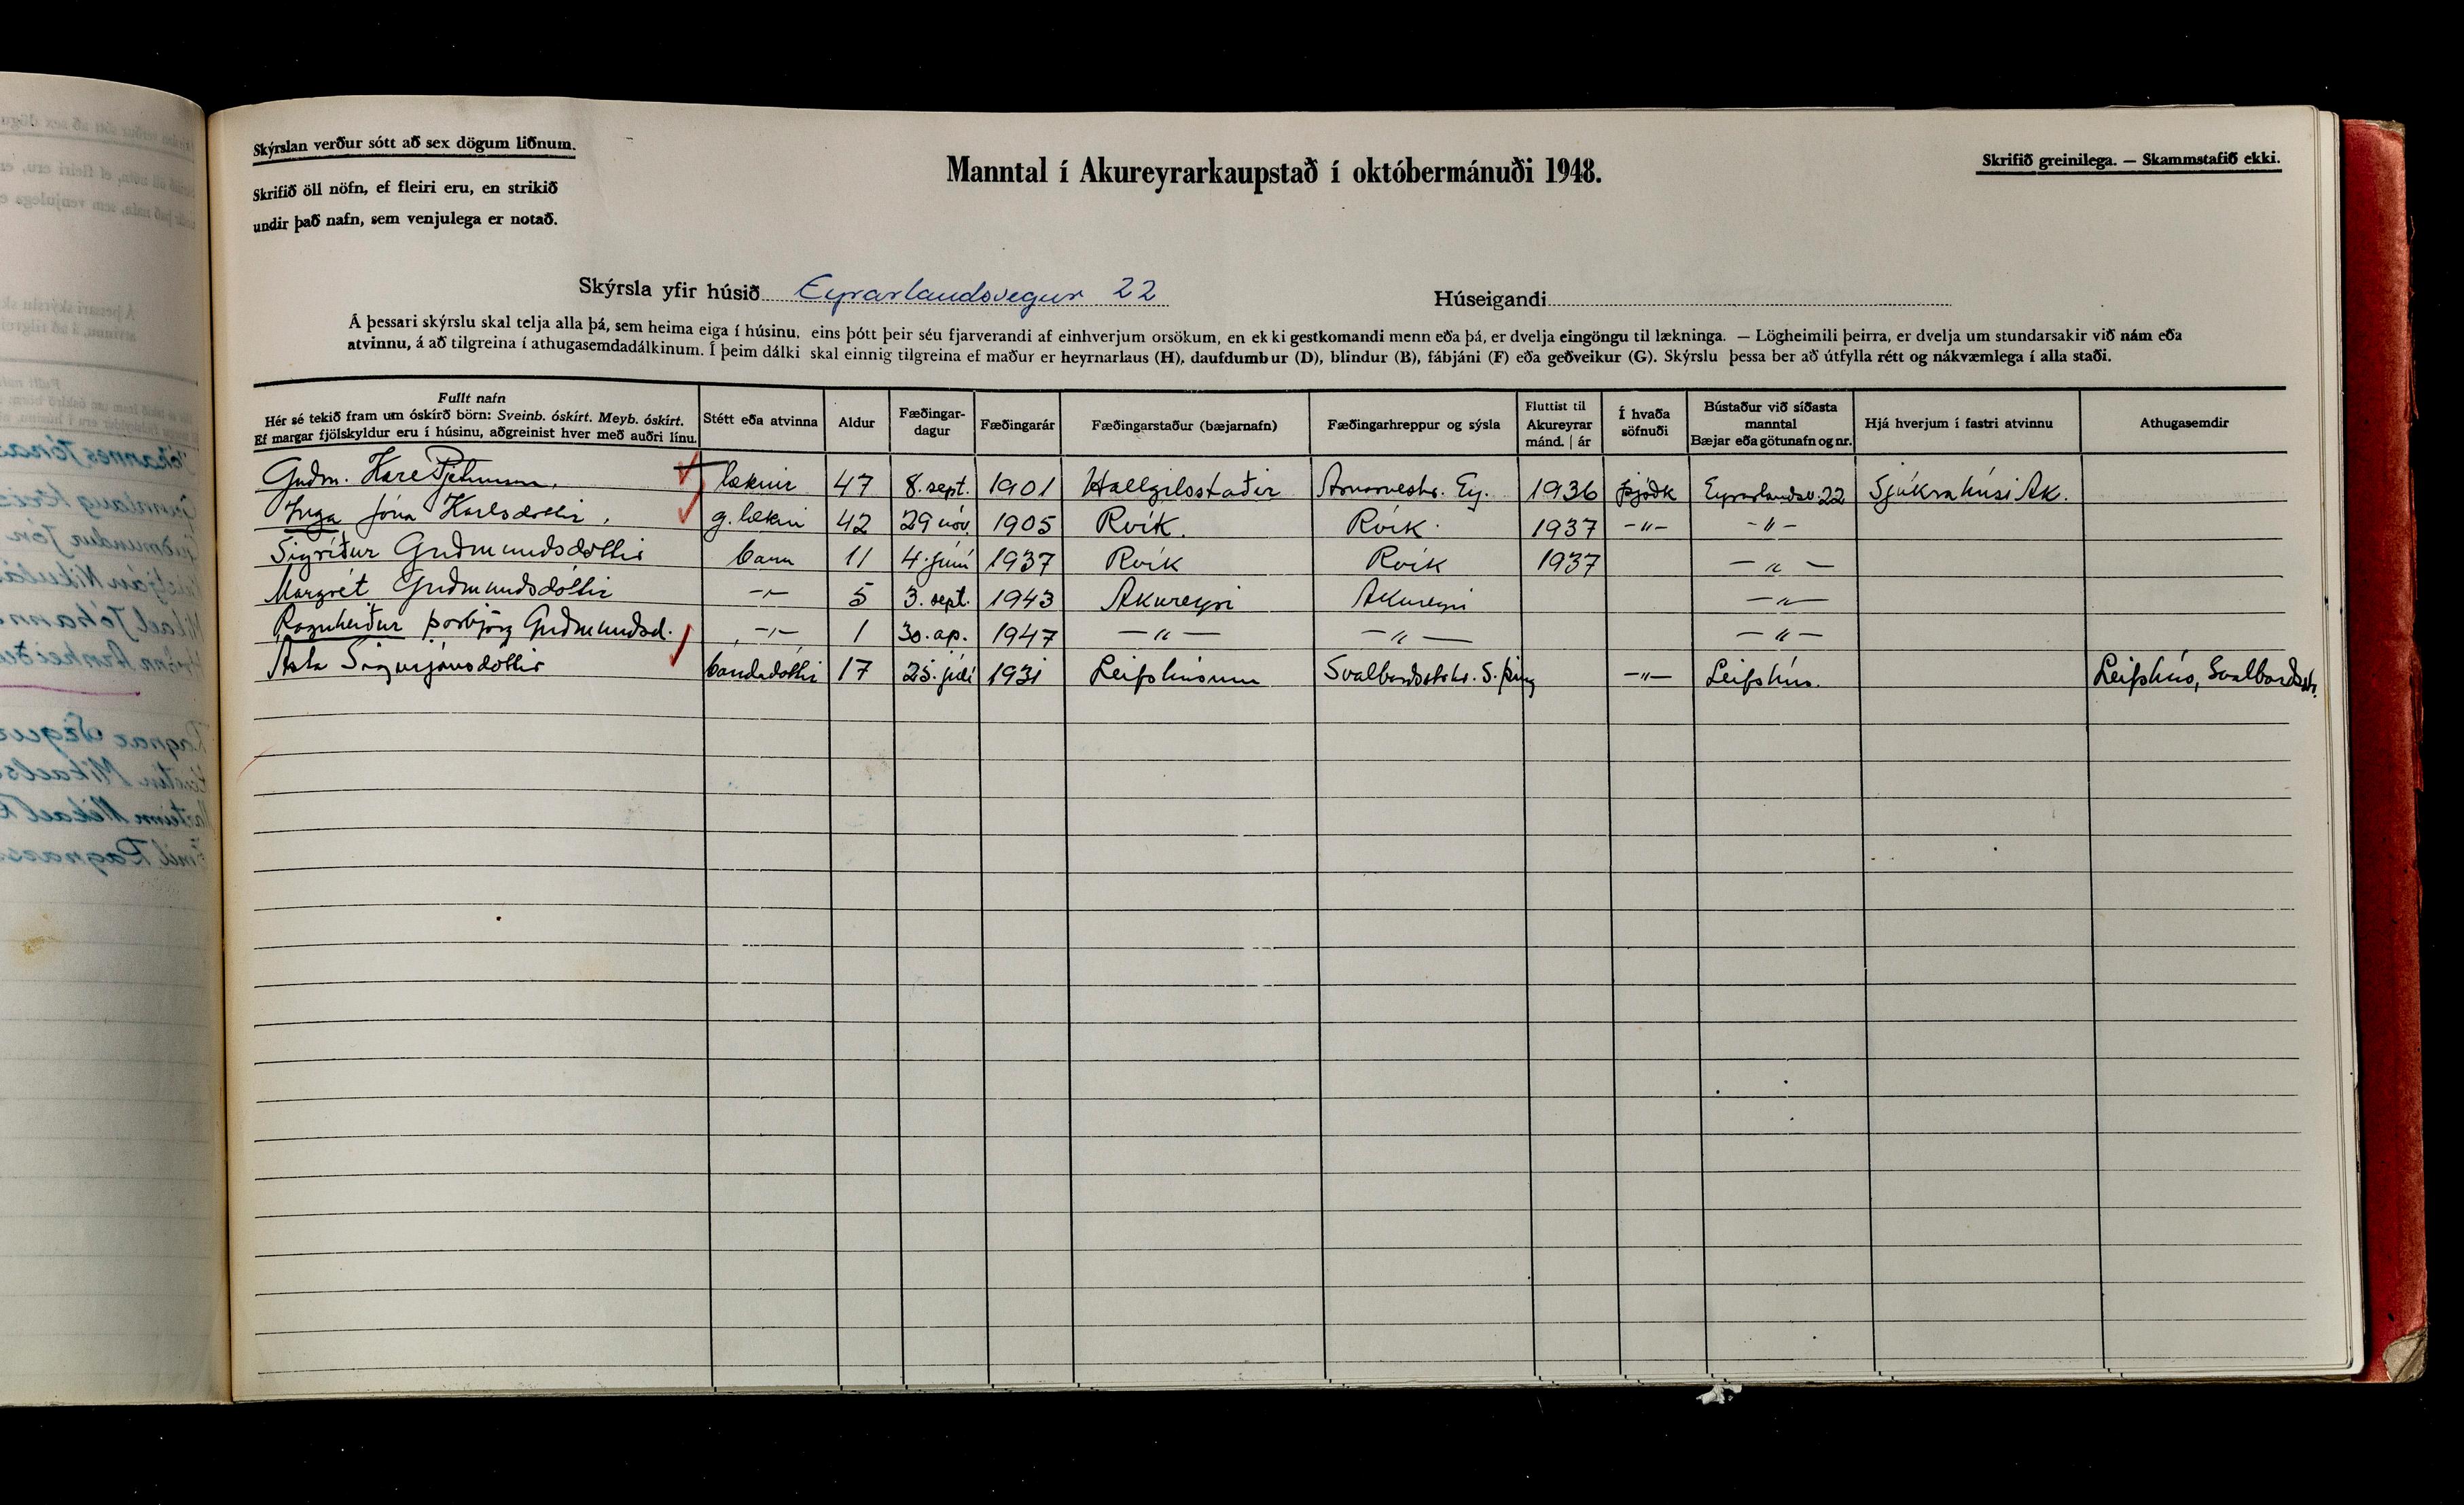 Skýrslan verður sótt að sex dögum liðnum.
Skrifið öll nöfn, ef fleiri eru, en strikið
undir það nafn, sem venjulega er notað.
Manntal í Akureyrarkaupstað í októbermánuði 1948.
Skrifið greinilega. — Skammstafið ekki.
Skýrsla yfir húsið Eyrarlandsvegur 22
Húseigandi
Á þessari skýrslu skal telja alla þá, sem heima eiga í húsinu, eins þótt þeir séu fjarverandi af einhverjum orsökum, en ekki gestkomandi menn eða þá, er dvelja eingöngu til lækninga. — Lögheimili þeirra, er dvelja um stundarsakir við nám eða
atvinnu, á að tilgreina í athugasemdadálkinum. Í þeim dálki skal einnig tilgreina ef maður er heyrnarlaus (H), daufdumbur (D), blindur (B), fábjáni (F) eða geðveikur (G). Skýrslu þessa ber að útfylla rétt og nákvæmlega í alla staði.
Fullt nafn
Hér sé tekið fram um óskírð börn: Sveinb. óskírt. Meyb. óskírt.
Ef margar fjölskyldur eru í húsinu, aðgreinist hver með auðri línu.
Stétt eða atvinna
Aldur
Fæðingar-
dagur
Fæðingarár
Fæðingarstaður (bæjarnafn)
Fæðingarhreppur og sýsla
Fluttist til
Akureyrar
mánd. | ár
Í hvaða
söfnuði
Bústaður við síðasta
manntal
Bæjar eða götunafn og nr.
Hjá hverjum í fastri atvinnu
Athugasemdir
Guðm. Karl Pjetursson. læknir 47 8. sept. 1901 Hallgilsstaðir Arnarneshr. Ey. 1936 þjóðk Eyrarlandsv. 22 Sjúkrahúsi Ak.
Inga Jóna Karlsdóttir, g. lækni 42 29 nóv. 1905 Rvík. Rvík. 1937 -"- -"-
Sigríður Guðmundsdóttir barn 11 4. júní 1937 Rvík Rvík 1937 — " —
Margrét Guðmundsdóttir -"- 5 3. sept. 1943 Akureyri Akureyri -"-
Ragnheiður Þorbjörg Guðmundsd. -"- 1 30. ap. 1947 — " — — " — — " —
Ásta Sigurjónsdóttir bóndadóttir 17 25. júlí 1931 Leifshúsum Svalbarðsstrhr. S. þing -"- Leifshús. Leifshús, Svalbarðsstr.